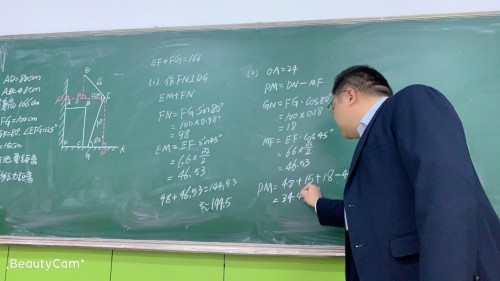 EF+FG=166
AD=80cm
AB=48cm
166cm
FG=100cm
∠EFG=125°
=15cm
E
66
F
C
G
K
(1) 作FN⊥DG
EM+FN
FN=FG·Sin80°
=100×0.98
=98
EM=EF·sin45°
=66×√2/2
=46.53
98+46.53=144.53
≈144.5
(2) OA=24
PM=DN-MF
GN=FG·Cos80°
=100×0.18
=18
MF=EF·Cos45°
=66×√2/2
=46.53
PM=48+15+18-4
=34.4
BeautyCam